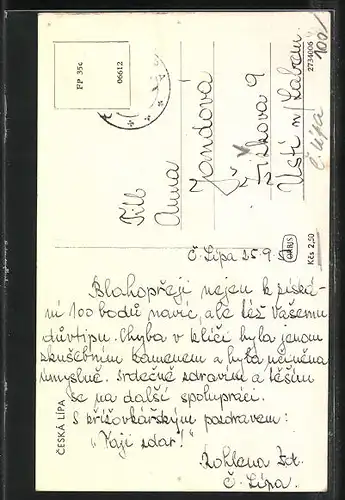 Č. Lípa 25.9.
Blahopřeji nejen k získá-
ní 100 bodů navíc, ale též Vašemu
důvtipu. Chyba v klíči byla jenom
zkušebním kamenem a byla míněna
úmyslně. Srdečně zdravím a těším
se na další spolupráci.
S křížovkářským pozdravem:
"Tají zdar!"
Č. Lípa.
ČESKÁ LÍPA
FP 35c
06612
Anna
Jandová
Žižkova 9
Ústí n Labem
Č Lípa
100
ORBIS
Kčs 2,50
2734006